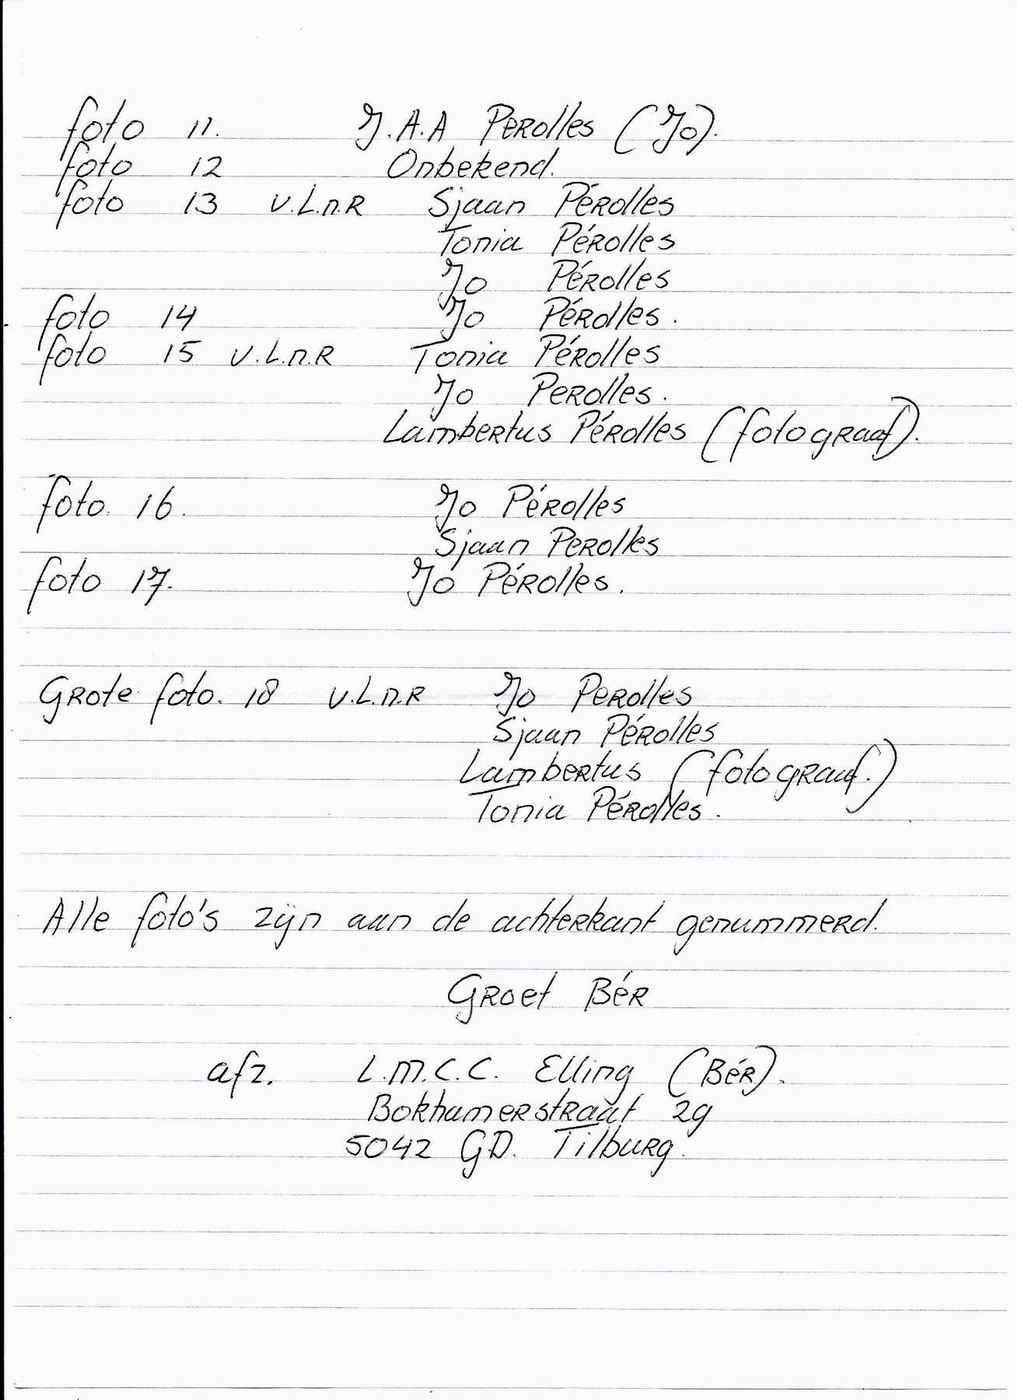 foto 11. J.A.A Perolles (Jo).
foto 12 Onbekend.
foto 13 v.L.n.R Sjaan Pérolles
Tonia Pérolles
Jo Pérolles
foto 14 Jo Pérolles.
foto 15 v.L.n.R Tonia Pérolles
Jo Perolles.
Lambertus Pérolles (fotograaf).
foto. 16. Jo Pérolles
Sjaan Perolles
foto 17. Jo Pérolles.
Grote foto. 18 v.L.n.R Jo Perolles
Sjaan Pérolles
Lambertus (fotograaf.)
Tonia Pérolles.
Alle foto's zijn aan de achterkant genummerd.
Groet Bér
afz. L.M.C.C. Elling (Bér).
Bokhamerstraat 29
5042 GD. Tilburg.